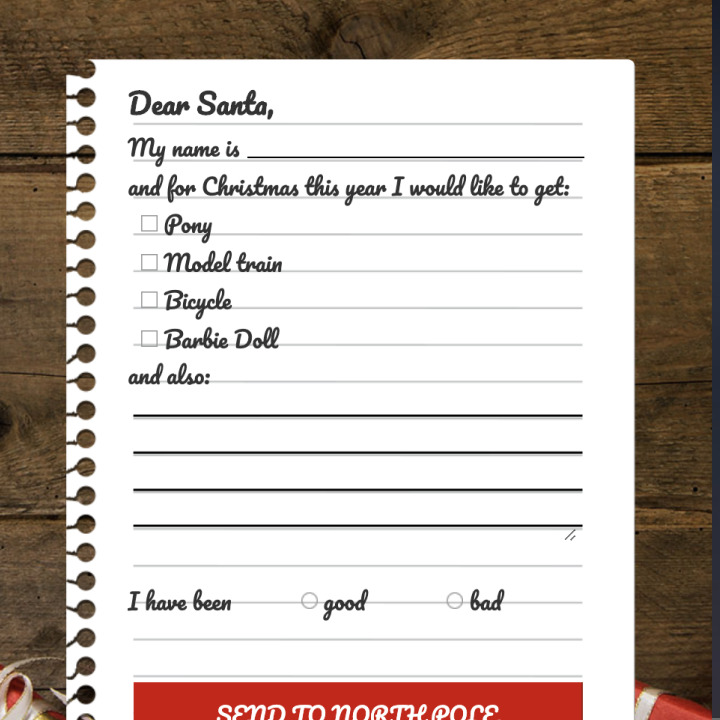 Dear Santa,
My name is
and for Christmas this year I would like to get:
Pony
Model train
Bicycle
Barbie Doll
and also:
I have been good bad
SEND TO NORTH POLE